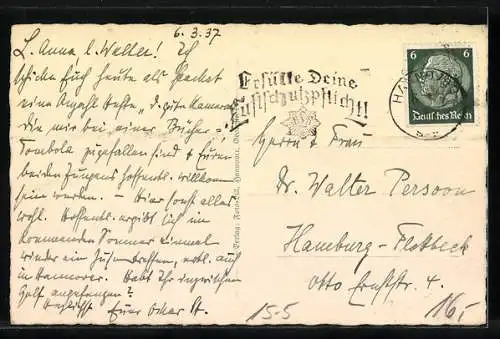 6.3.37
L. Anna & Walter! Ich
schicke Euch heute als Packet
eine Anzahl Hefte „D. gute Kamerad"
die mir bei einer Bücher-
Tombola zugefallen sind & Euren
beiden Jungens hoffentl. willkommen
sein werden. - Hier sonst alles
wohl. Hoffentl. ergibt sich im
kommenden Sommer einmal
wieder ein Zusammentreffen, evtl. auch
in Hannover. Habt Ihr inzwischen
Golf angefangen?
Herzlichst Euer Oskar
Verlag:
Erfülle Deine
Luftschutzpflicht!
6
Deutsches Reich
Herrn & Frau
Dr. Walter Persoon
Hamburg-Flotbeck
Otto Ernststr. 4.
15-5
16,-